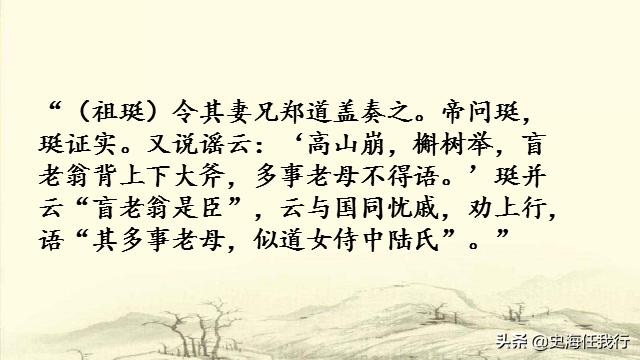 “（祖珽）令其妻兄郑道盖奏之。帝问珽，
珽证实。又说谣云：‘高山崩，槲树举，盲
老翁背上下大斧，多事老母不得语。’珽并
云“盲老翁是臣”，云与国同忧戚，劝上行，
语“其多事老母，似道女侍中陆氏”。”
头条 @史海任我行